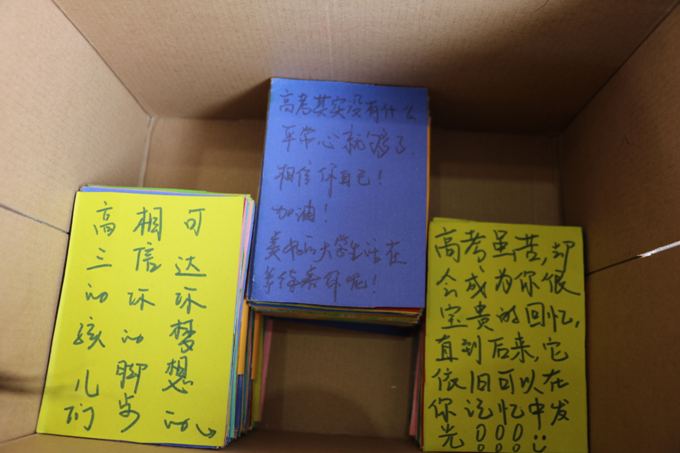 高三的孩儿们
相信你的脚步
可达你梦想的
高考其实没有什么
平常心就够了.
相信你自己!
加油!
美好的大学生活在
等待着你呢!
高考虽苦,却
会成为你很
宝贵的回忆,
直到后来,它
依旧可以在
你记忆中发
光!!!